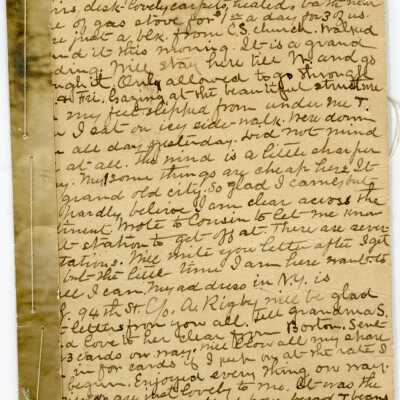 irs, desk lovely carpets, heated
of gas stove for $1 00 a day for 3 of us.
re just a blk. from C.S. church. Walked
nd it this morning. It is a grand
ding. Will stay here till W. and go
ugh it. Only allowed to go through
Fri. Gazing at the beautiful structure
my feet slipped from under me &
I sat on icy side-walk. Were down
all day yesterday. Did not mind
at all. The wind is a little sharper
y. My! some things are cheap here. It
grand old city. So glad I came, but
hardly believe I am clear across the
tinent. Wrote to Cousin to let me know
t station to get off at. There are sever-
tations. Will write you letter after I get
but the little time I am here want to
ee all I can. My address in N.Y. is
94th St. C/o. A. Rigby will be glad
letters from you all. Tell grandma S.
d love to her clear from Boston. Sent
3 cards on way. Will blow all my spare
in for cards if I keep on at the rate I
begun. Enjoyed every thing on way.
are just lovely to me. It was the
beans